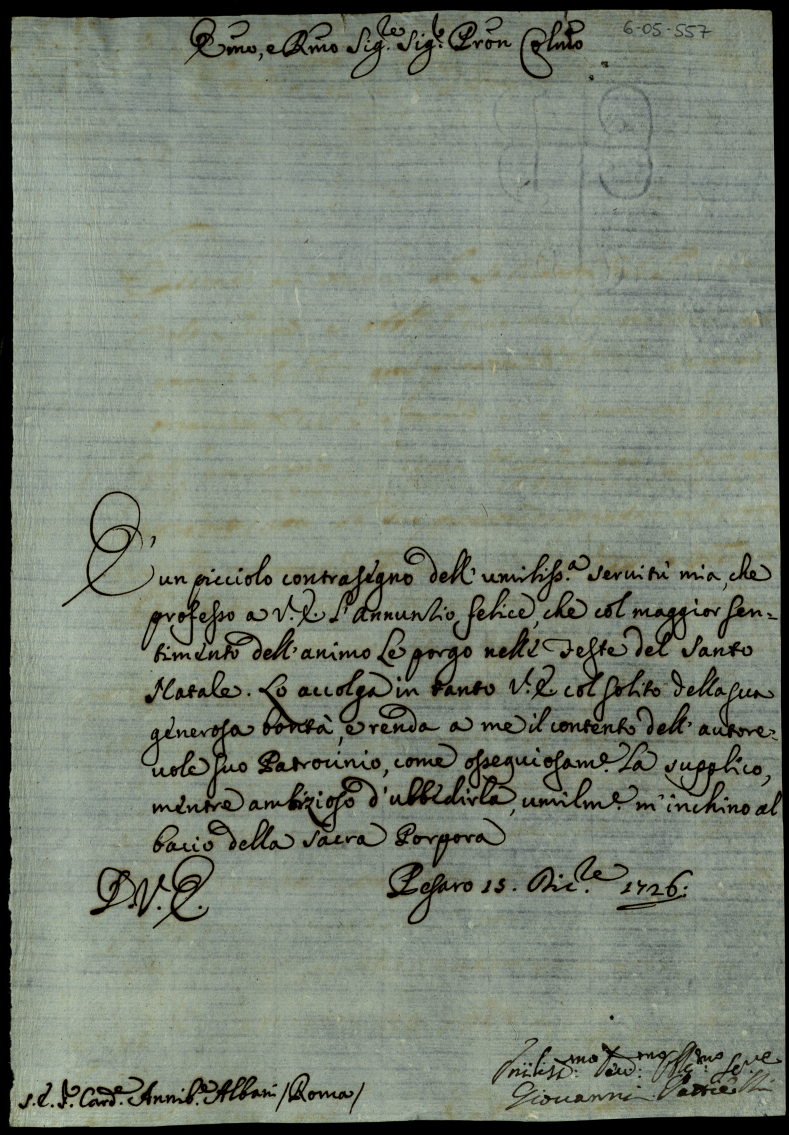 Emo, e Rmo Sig.re Sig.r Pron Colmo
6-05-557
E' un picciolo contrasegno dell' umiliss.a servitù mia, che
professo a V. E. L'annuntio felice, che col maggior sen-
timento dell' animo Le porgo nelle Feste del Santo
Natale. Lo accolga in tanto V. E. col solito della sua
generosa bontà, e renda a me il contento dell' autore-
uole suo Patrocinio, come ossequiosam.e La supplico,
mentre ambizioso d'ubbidirla, umilm.e m'inchino al
bacio della Sacra Porpora
D. V. E.
Pesaro 15. Dic.re 1726.
Card.e Annib.e Albani /Roma/
Giovanni